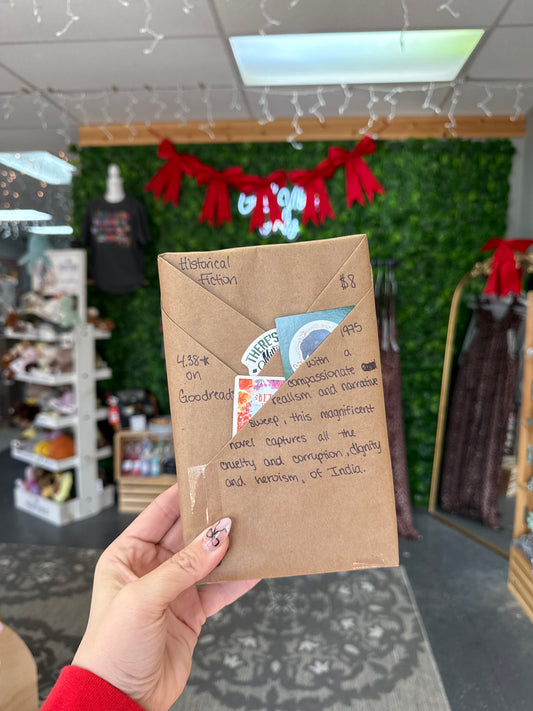 Historical
Fiction
$8
1975
4.38★
on
Goodreads
THERE'S
with a
compassionate
realism and narrative
sweep, this magnificent
novel captures all the
cruelty and corruption, dignity
and heroism, of India.